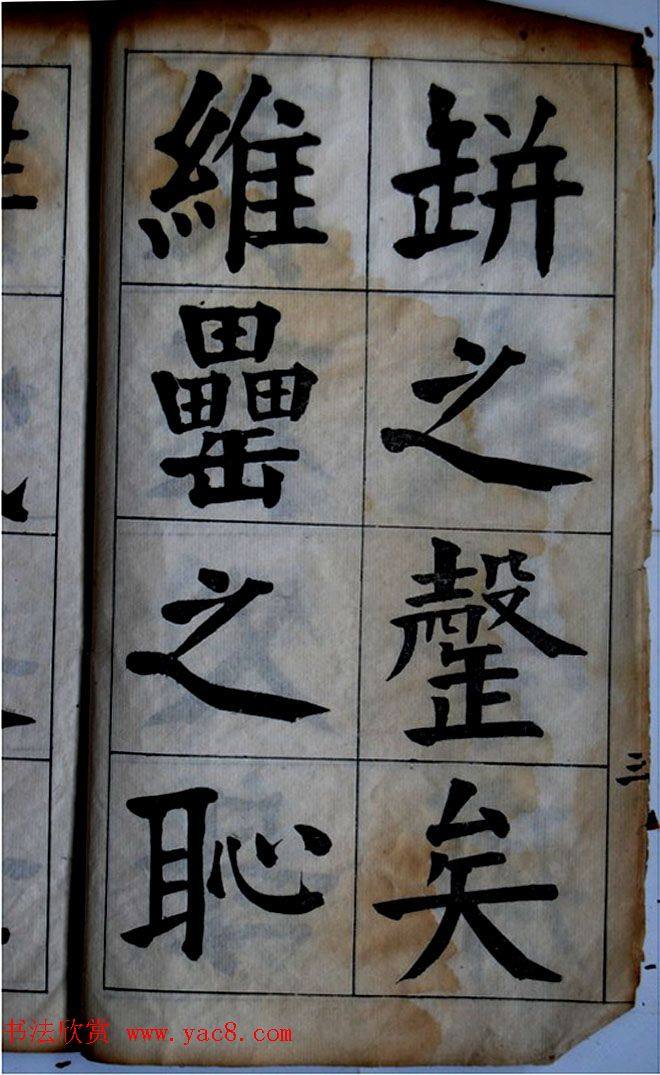 缾之罄矣
維罍之恥
三
书法欣赏 www.yac8.com